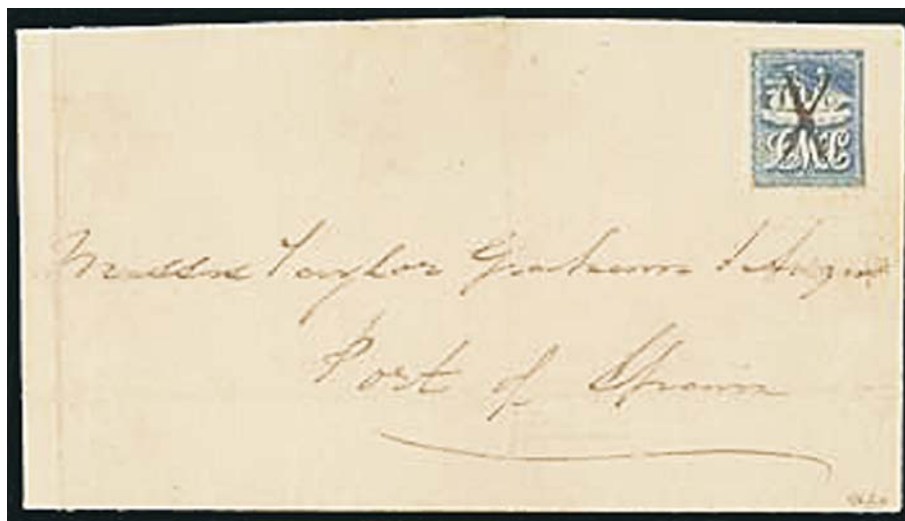 LMcL
Messrs Taylor Graham &
Port of Spain